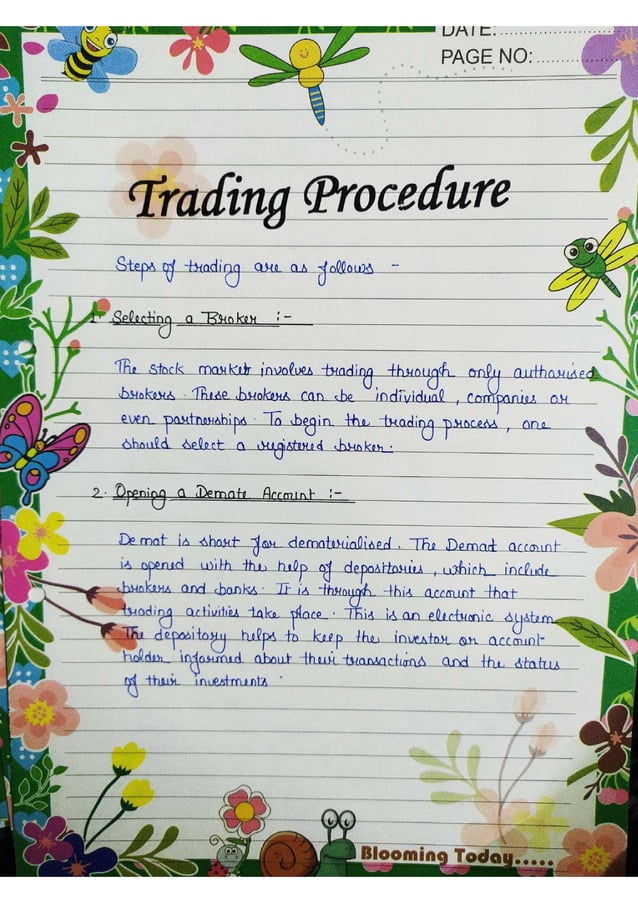 DATE:
PAGE NO:
Trading Procedure
Steps of trading are as follows -
1. Selecting a Broker :-
The stock market involves trading through only authorised
brokers. These brokers can be individual, companies or
even partnerships. To begin the trading process, one
should select a registered broker.
2. Opening a Demate Account :-
Demat is short for dematerialised. The Demat account
is opened with the help of depositories, which include
brokers and banks. It is through this account that
trading activities take place. This is an electronic system
The depository helps to keep the investor or account-
holder informed about their transactions and the status
of their investments.
Blooming Today.....